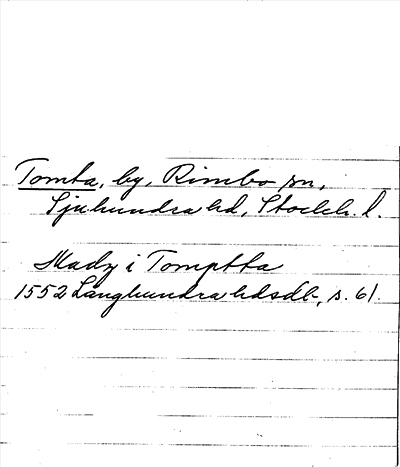 Tomta, by, Rimbo sn,
Sjuhundra hd, Stockh. l.
Mady i Tomptta
1552 Långhundra hdsdb, s. 61.